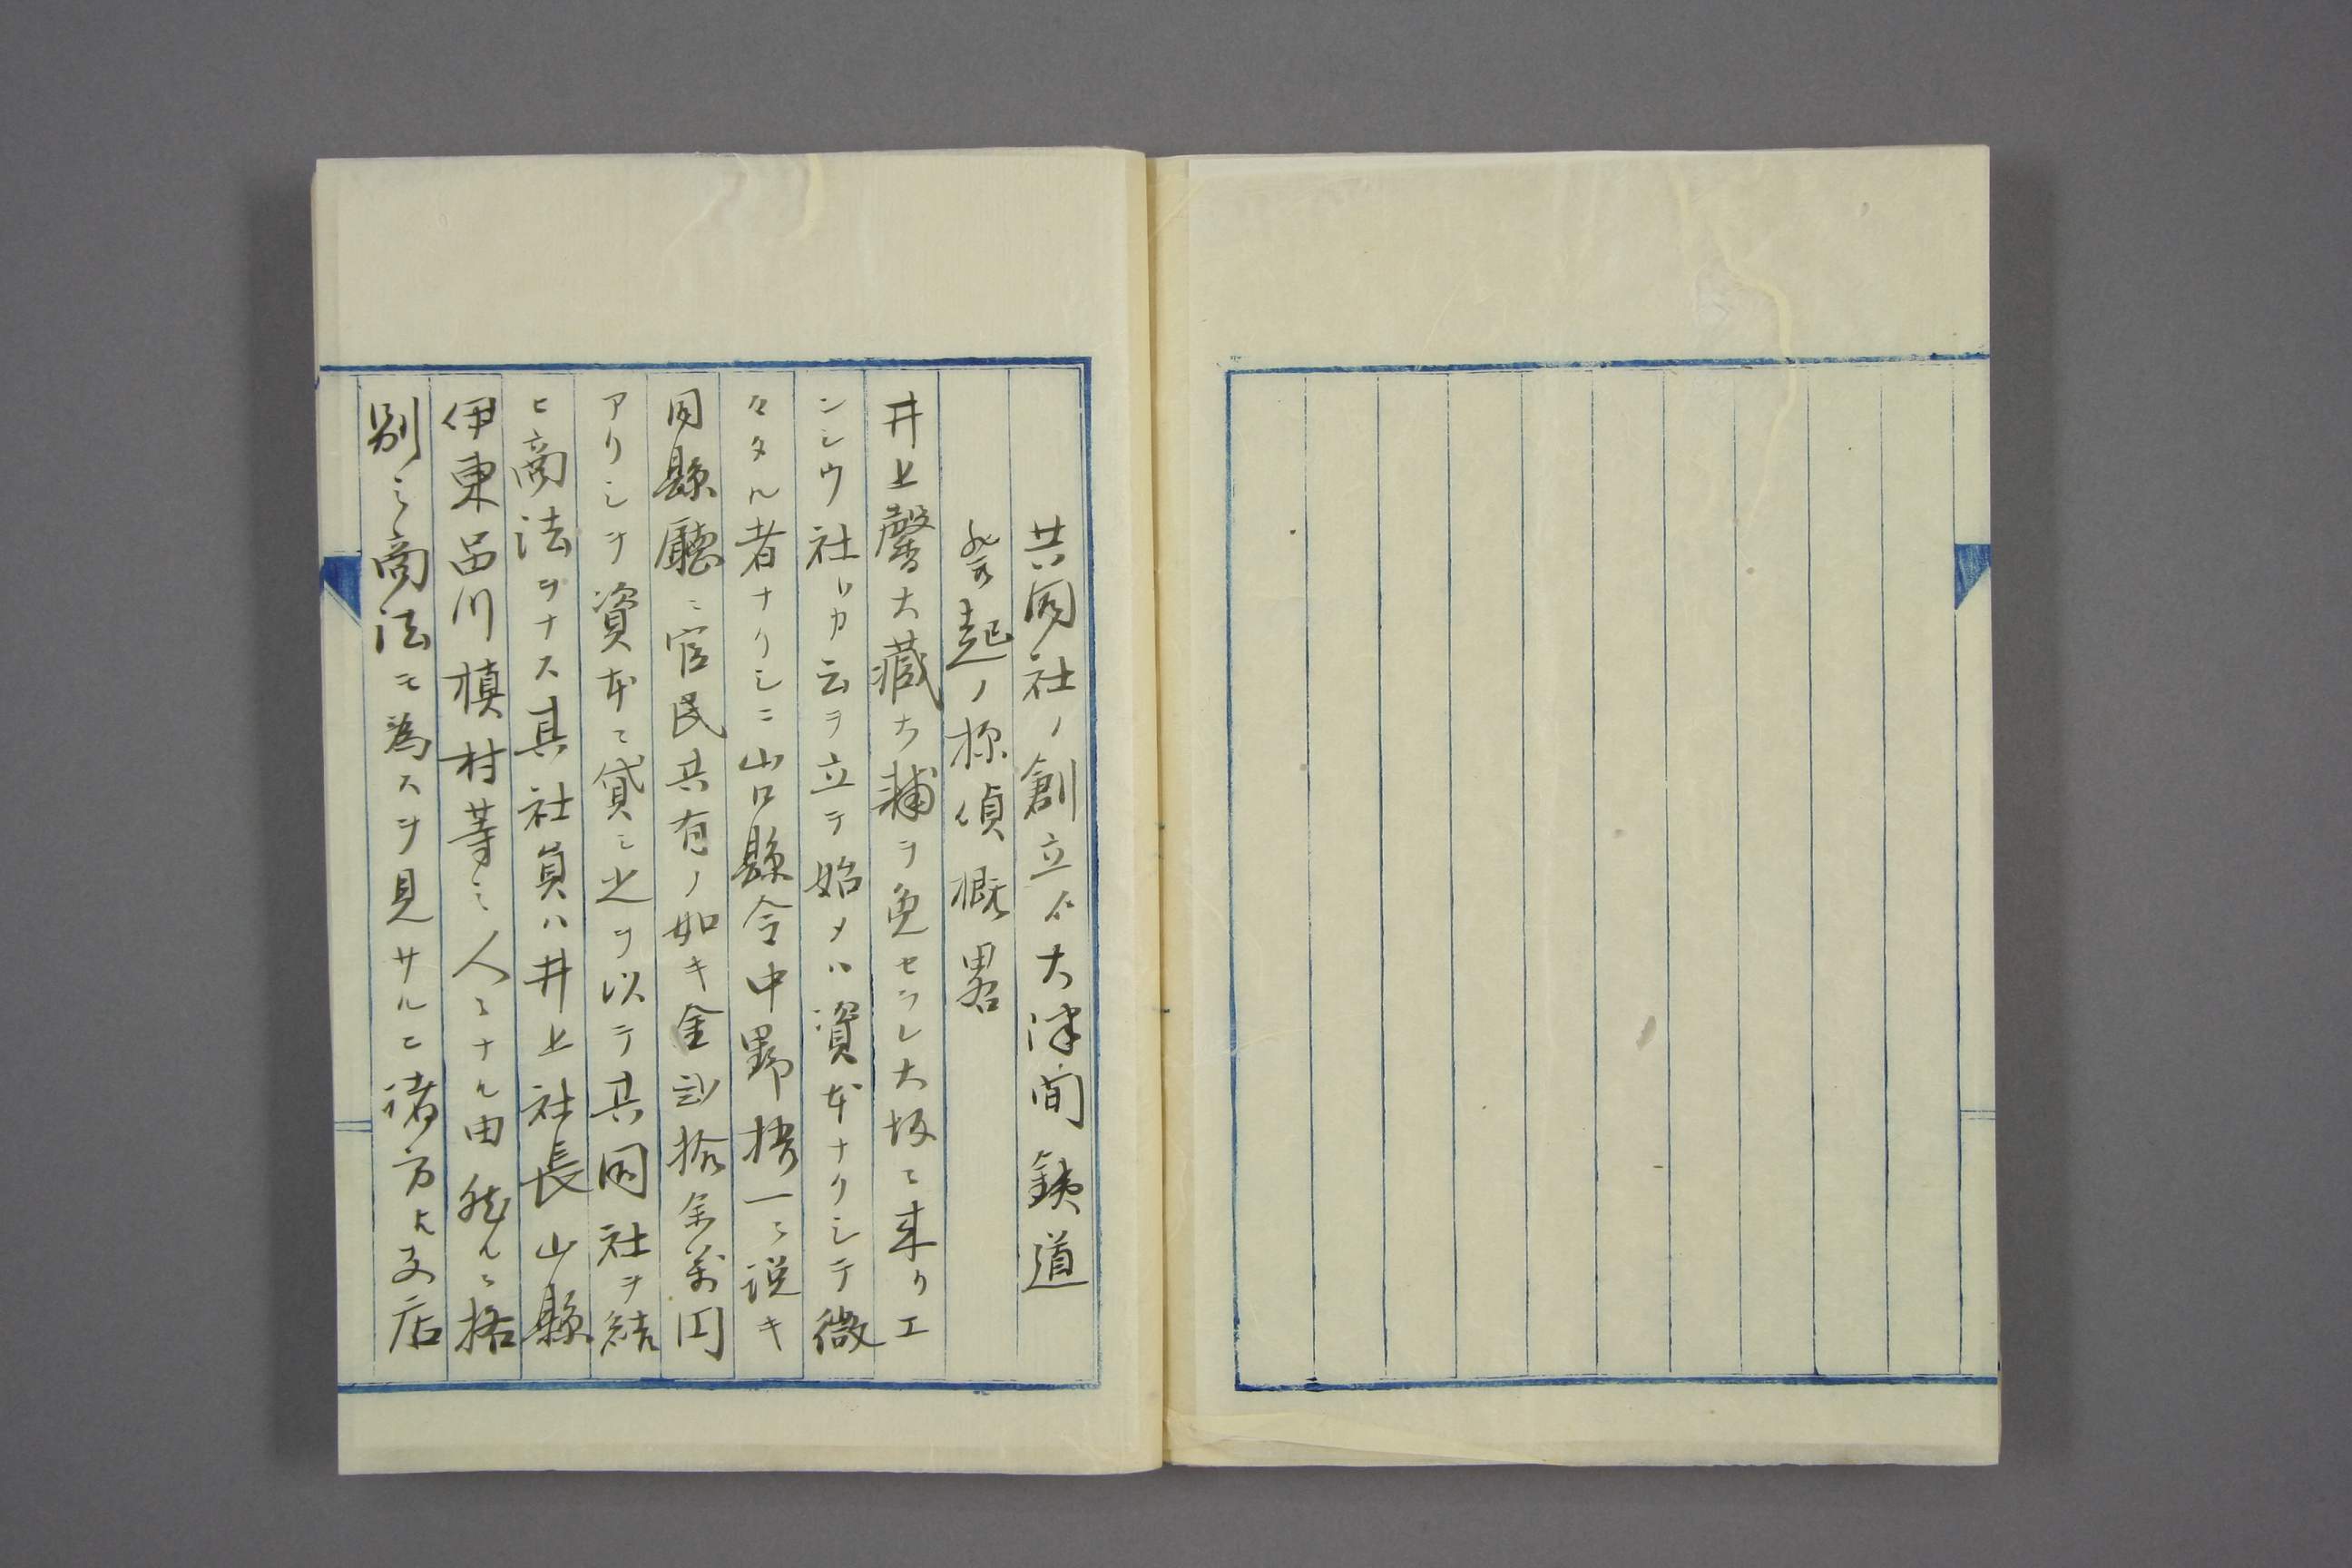 共同社ノ創立並大津間鉄道
發起ノ探偵概畧
井上馨大藏大輔ヲ免セラレ大坂ニ来リエ
ンシウ社トカ云ヲ立テ始メハ資本ナクシテ微
々タル者ナリシニ山口縣令中野梧一ニ説キ
同縣廳ニ官民共有ノ如キ金弐拾余萬円
アリシヲ資本ニ貸シ之ヲ以テ共同社ヲ結
ヒ商法ヲナス其社員ハ井上社長山縣
伊東品川槙村等ミ人ミナル由然ルニ格
別ニ商法モ為スヲ見サルニ諸方ヘ支店